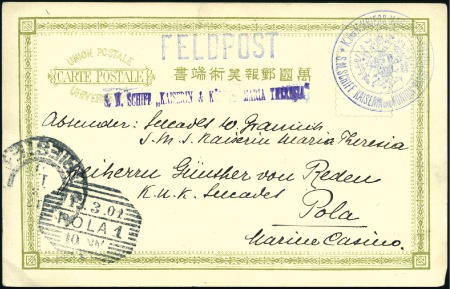 FELDPOST
UNION POSTALE
CARTE POSTALE
萬國郵報美術端書
S. M. SCHIFF „KAISERIN & K MARIA THERESIA"
S. M. SCHIFF KAISERIN UND KÖNIGIN
Absender: Seecadet
S. M. S. Kaiserin Maria Theresia
Freiherrn Günther von Reden
K. u. K. Seecadet
Pola
Marine Casino.
3.01
POLA 1
10 V